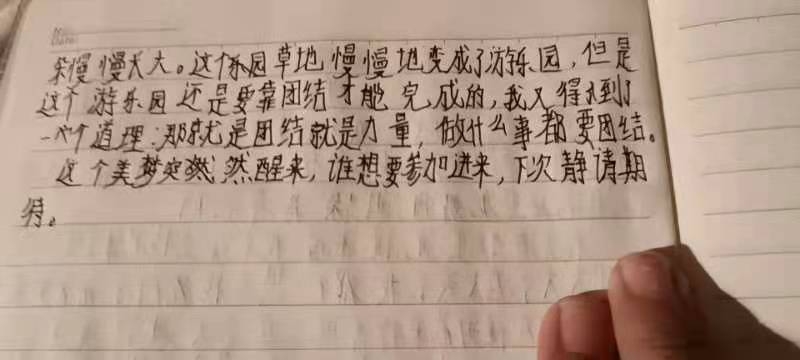 朵慢慢长大。这个乐园草地慢慢地变成了游乐园，但是
这个游乐园还是要靠团结才能完成的，我又得到了
一个道理：那就是团结就是力量，做什么事都要团结。
这个美梦突然醒来，谁想要参加进来，下次静请期
待。